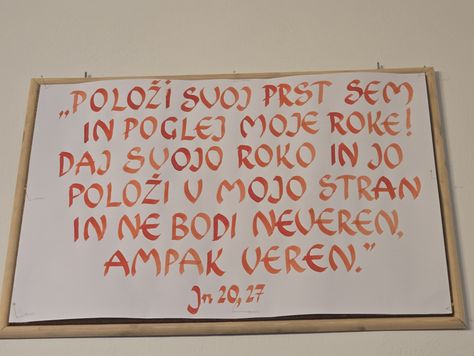 „POLOŽI SVOJ PRST SEM
IN POGLEJ MOJE ROKE!
DAJ SVOJO ROKO IN JO
POLOŽI V MOJO STRAN
IN NE BODI NEVEREN,
AMPAK VEREN.”
Jn 20, 27